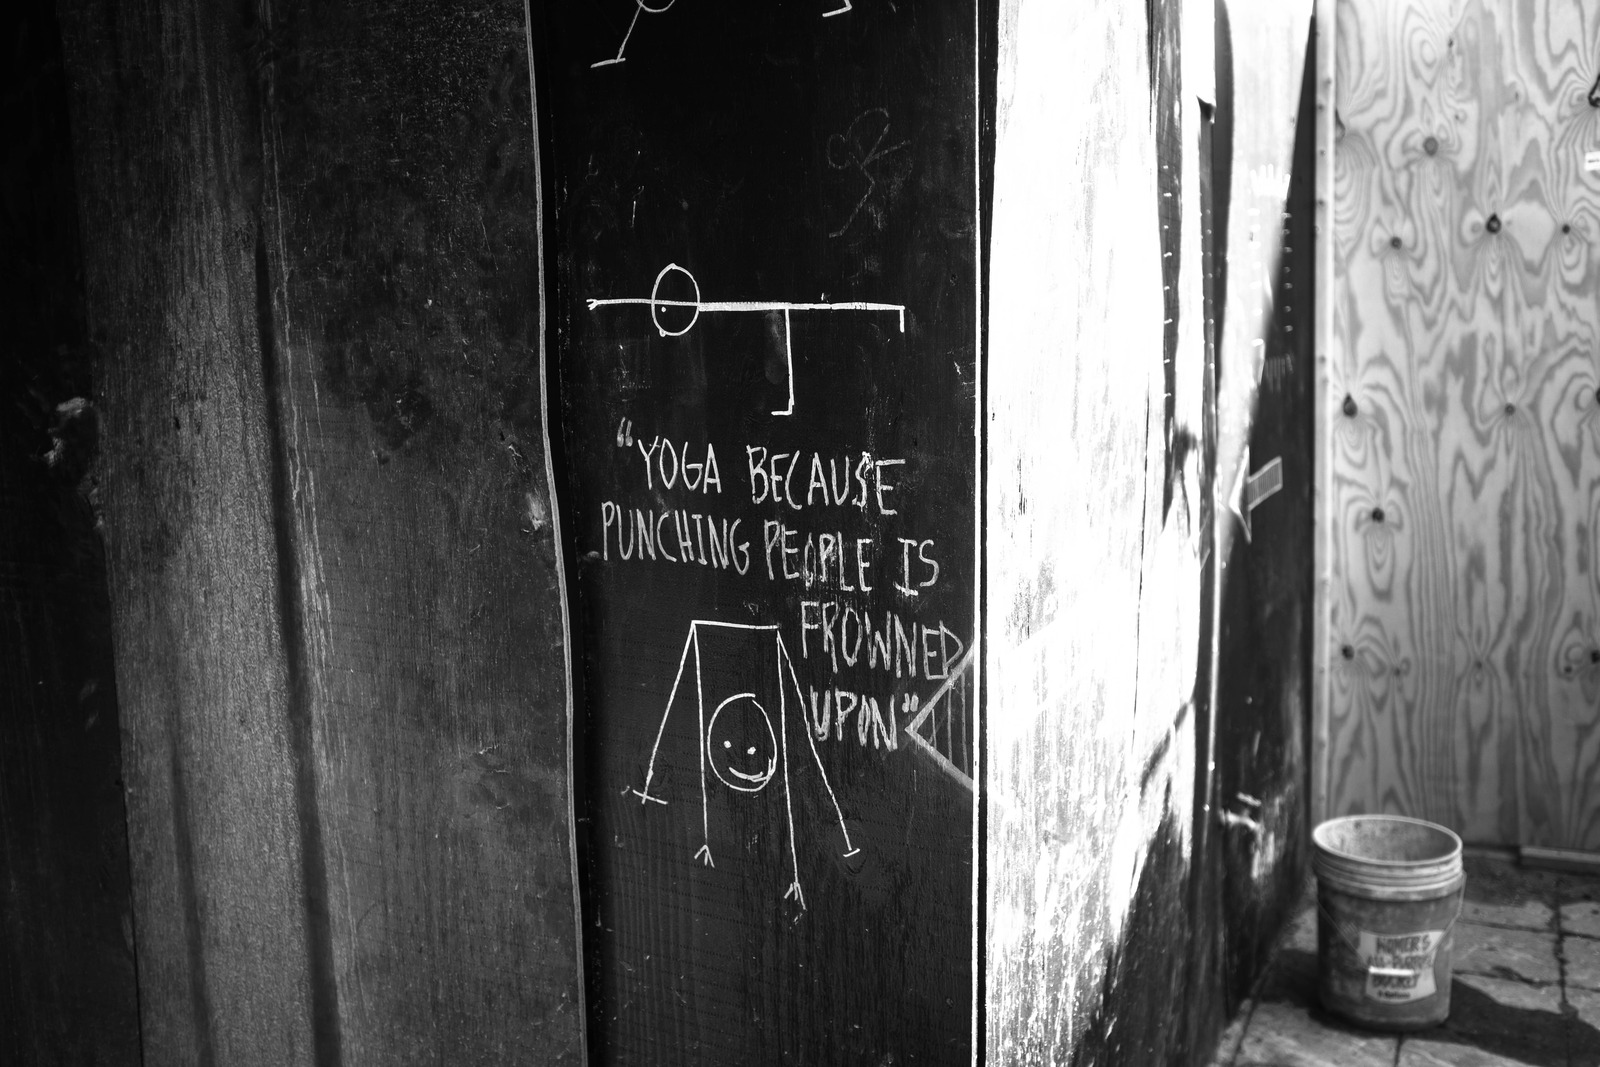 “YOGA BECAUSE
PUNCHING PEOPLE IS
FROWNED
UPON”
HOMER'S
ALL-PURPOSE
BUCKET